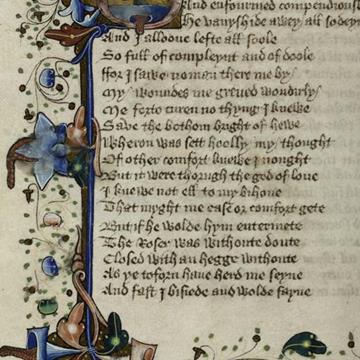 And enfourmed compendiously
He vanysshide awey all sodeynly
And I alloone lefte all soole
So full of compleynt and of doole
ffor I sawe no man there me by
My woundes me greved wondirly
Me forto curen no thyng I knewe
Save the bothom bright of hewe
Wheron was sett hoolly my thought
Of other comfort knewe I nought
But it were thorugh the god of love
I knewe not ell to my bihove
That myght me ease or comfort gete
But if he wolde hym entermete
The Roser was withoute doute
Closed with an hegge withoute
As ye toforn have herd me seyne
And fast I bisiede and wolde fayne